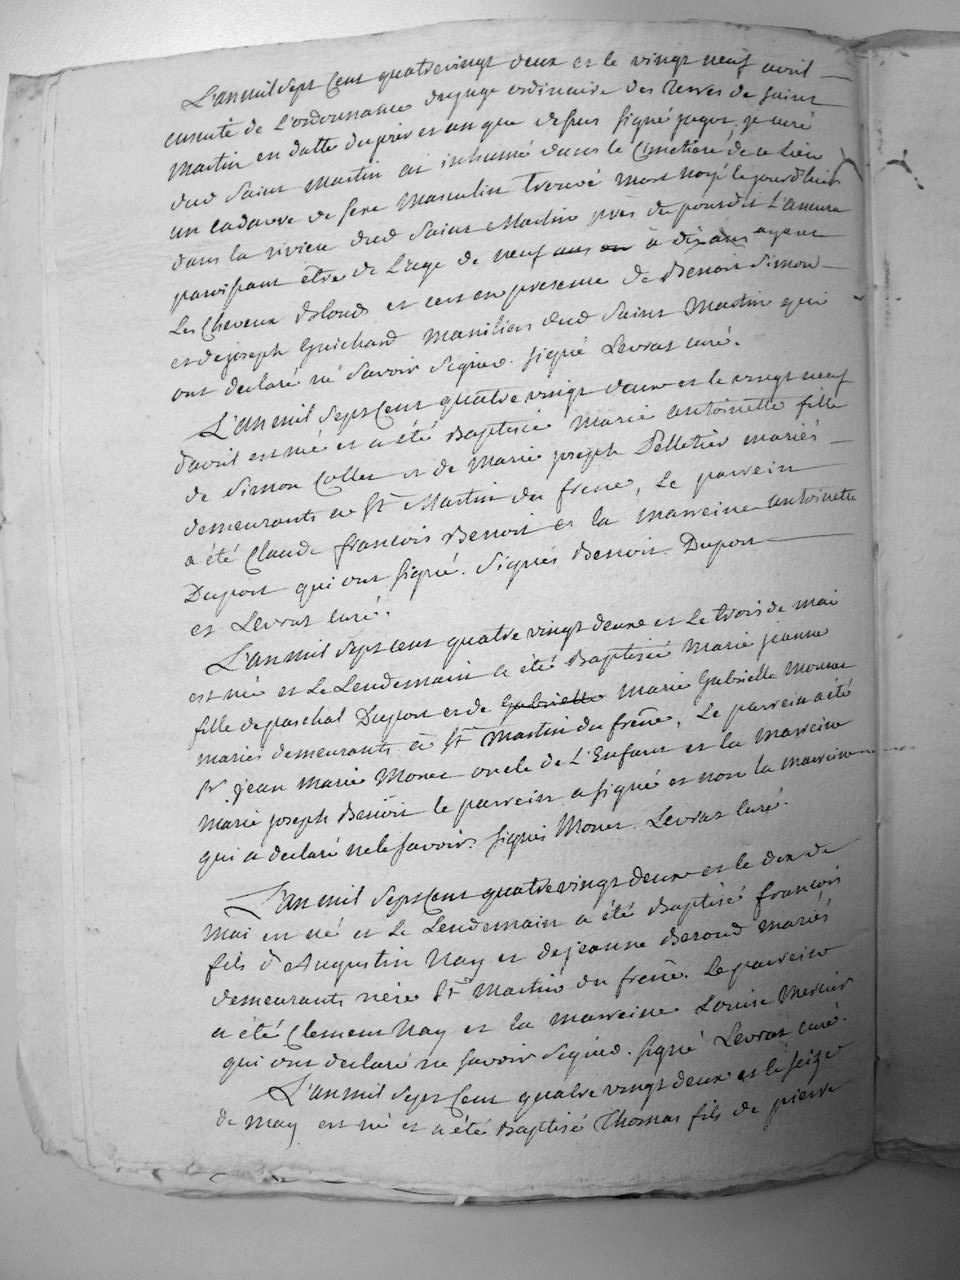 L'an mil sept Cent quatrevingt deux et le vingt neuf avril
ensuite de L'ordonnance du juge ordinaire des terres de saint
Martin en datte du jour et an que dessus signé jugot, je curé
dud Saint Martin ai inhumé dans le Cimetiere de ce Lieu
un cadavre de sexe Masculin trouvé mort noyé le jourd'huis
dans la riviere dud Saint Martin près du pont de L'
paroissant être de L'age de neuf ans ou à dix ans ayant
Les Cheveux blonds et ce en presence de Benoit Simon
et de joseph Guichard Maniliers dud Saint Martin qui
ont declaré ne Savoir Signer. signé Levrat curé.
L'an mil Sept Cent quatre vingt deux et le vingt neuf
d'avril est née et a été Baptisée Marie antoinette fille
de Simon Collet et de Marie joseph Pelletier mariés
demeurants à St Martin du frene, Le parrein
a été Claude francois Benoit et la marreine antoinette
Dupont qui ont signé. Signés Benoit. Dupont
et Levrat curé.
L'an mil Sept cent quatre vingt deux et Le trois de mai
est née et Le Lendemain a été Baptisée Marie jeanne
fille de paschal Dupont et de Gabrielle Marie Gabrielle Monet
mariés demeurants à St Martin du frêne, Le parrein a été
Sr. jean Marie Monet oncle de L'Enfant et la Marreine
Marie joseph Benoit le parrein a signé et non la marreine
qui a declaré ne le savoir. signés Monet. Levrat curé.
L'an mil Sept Cent quatre vingt deux et le dix de
Mai est né et Le Lendemain a été Baptisé francois
fils d'Augustin Nay et de jeanne Beroud mariés
demeurants rière St Martin du frêne. Le parrein
a été Clement Nay et la marreine Louise Mercier
qui ont declaré ne savoir Signer. signé Levrat curé.
L'an mil Sept Cent quatre vingt deux et le seize
de may est né et a été Baptisé Thomas fils de pierre